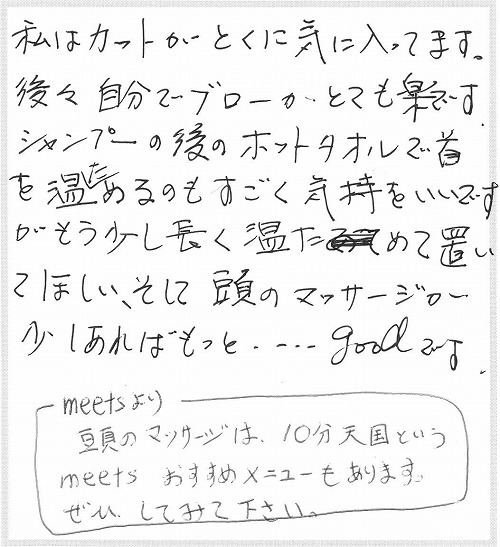 私はカットがとくに気に入ってます。
後々自分でブローがとても楽です
シャンプーの後のホットタオルで首
を温ためるのもすごく気持をいいです
がもう少し長く温ためて置い
てほしい、そして頭のマッサージが
少しあればもっと・・・・・goodです。
meetsより
頭のマッサージは、10分天国という
meets おすすめメニューもあります。
ぜひ、してみて下さい。